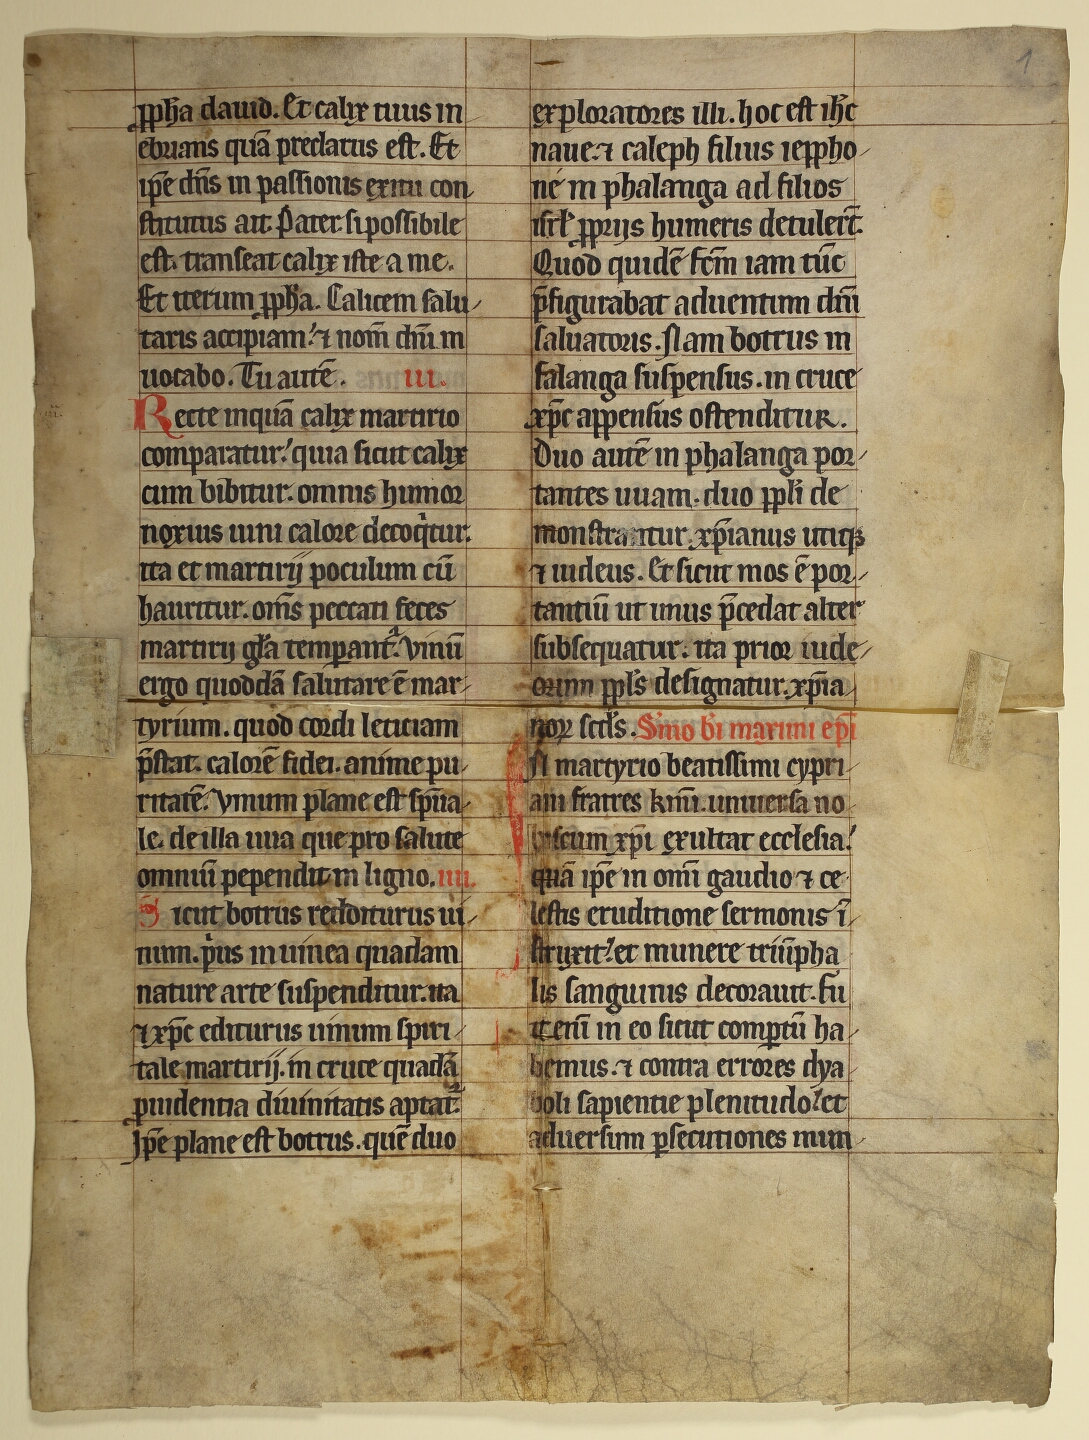 ꝓph̄a dauid. Et calix tuus in
ebrians quā preclarus est. Et
ip̄e dn̄s in passionis exitu con
stitutus ait. Pater si possibile
est. transeat calix iste a me.
Et iterum ꝓph̄a. Calicem salu
taris accipiam: ⁊ nom̄ dn̄i in
uocabo. Tu autē. III.
Recte inquā calix martirio
comparatur: quia sicut calix
cum bibitur. omnis humor
noxius uini calore decoq̇tur.
ita et martirij poculum cū
hauritur. om̄s peccati feces
martirij gl̄a temperant᷑. Vinū
ergo quoddā salutare ē mar
tyrium. quod cordi leticiam
p̄stat. calorē fidei. anime pu
ritatē. Vinum plane est sp̄ua
le. de illa uua que pro salute
omniū pependit in ligno. IIII.
Sicut botrus redditurus ui
num. pͥus in uinea quadam
nature arte suspenditur. ita
⁊ xp̄c editurus uinum spiri
tale martirij. in cruce quadā
ꝓuidentia diuinitatis aptat᷑.
Ip̄e plane est botrus. quē duo
exploratores illi. hoc est ih̄c
naue. ⁊ caleph filius ieppho
ne in phalanga ad filios
isrl̄ ꝓprijs humeris detulert̄.
Quod quidē fc̄m iam tūc
p̄figurabat aduentum dn̄i
saluatoris. Nam botrus in
falanga suspensus. in cruce
xp̄c appensus ostenditur.
Duo autē in phalanga por
tantes uuam. duo ppl̄i de
monstrantur. xp̄ianus utiqꝫ
⁊ iudeus. Et sicut mos ē por
tantiū ut unus p̄cedat alter
subsequatur. ita prior iude
orum ppl̄s designatur. xp̄ia
noꝝ sc̄ds. Sm̄o b̄i maximi ep̄i
N martyrio beatissimi cypri
ani fratres km̄i. uniuersa no
biscum xp̄i exultat ecclesia:
quā ip̄e in om̄i gaudio ⁊ ce
lestis eruditione sermonis ī
struxit: et munere triūpha
lis sanguinis decorauit. fu
it enī in eo sicut comptū ha
bemus. ⁊ contra errores dya
boli sapientie plenitudo: et
aduersum ꝑsecutiones mun
1